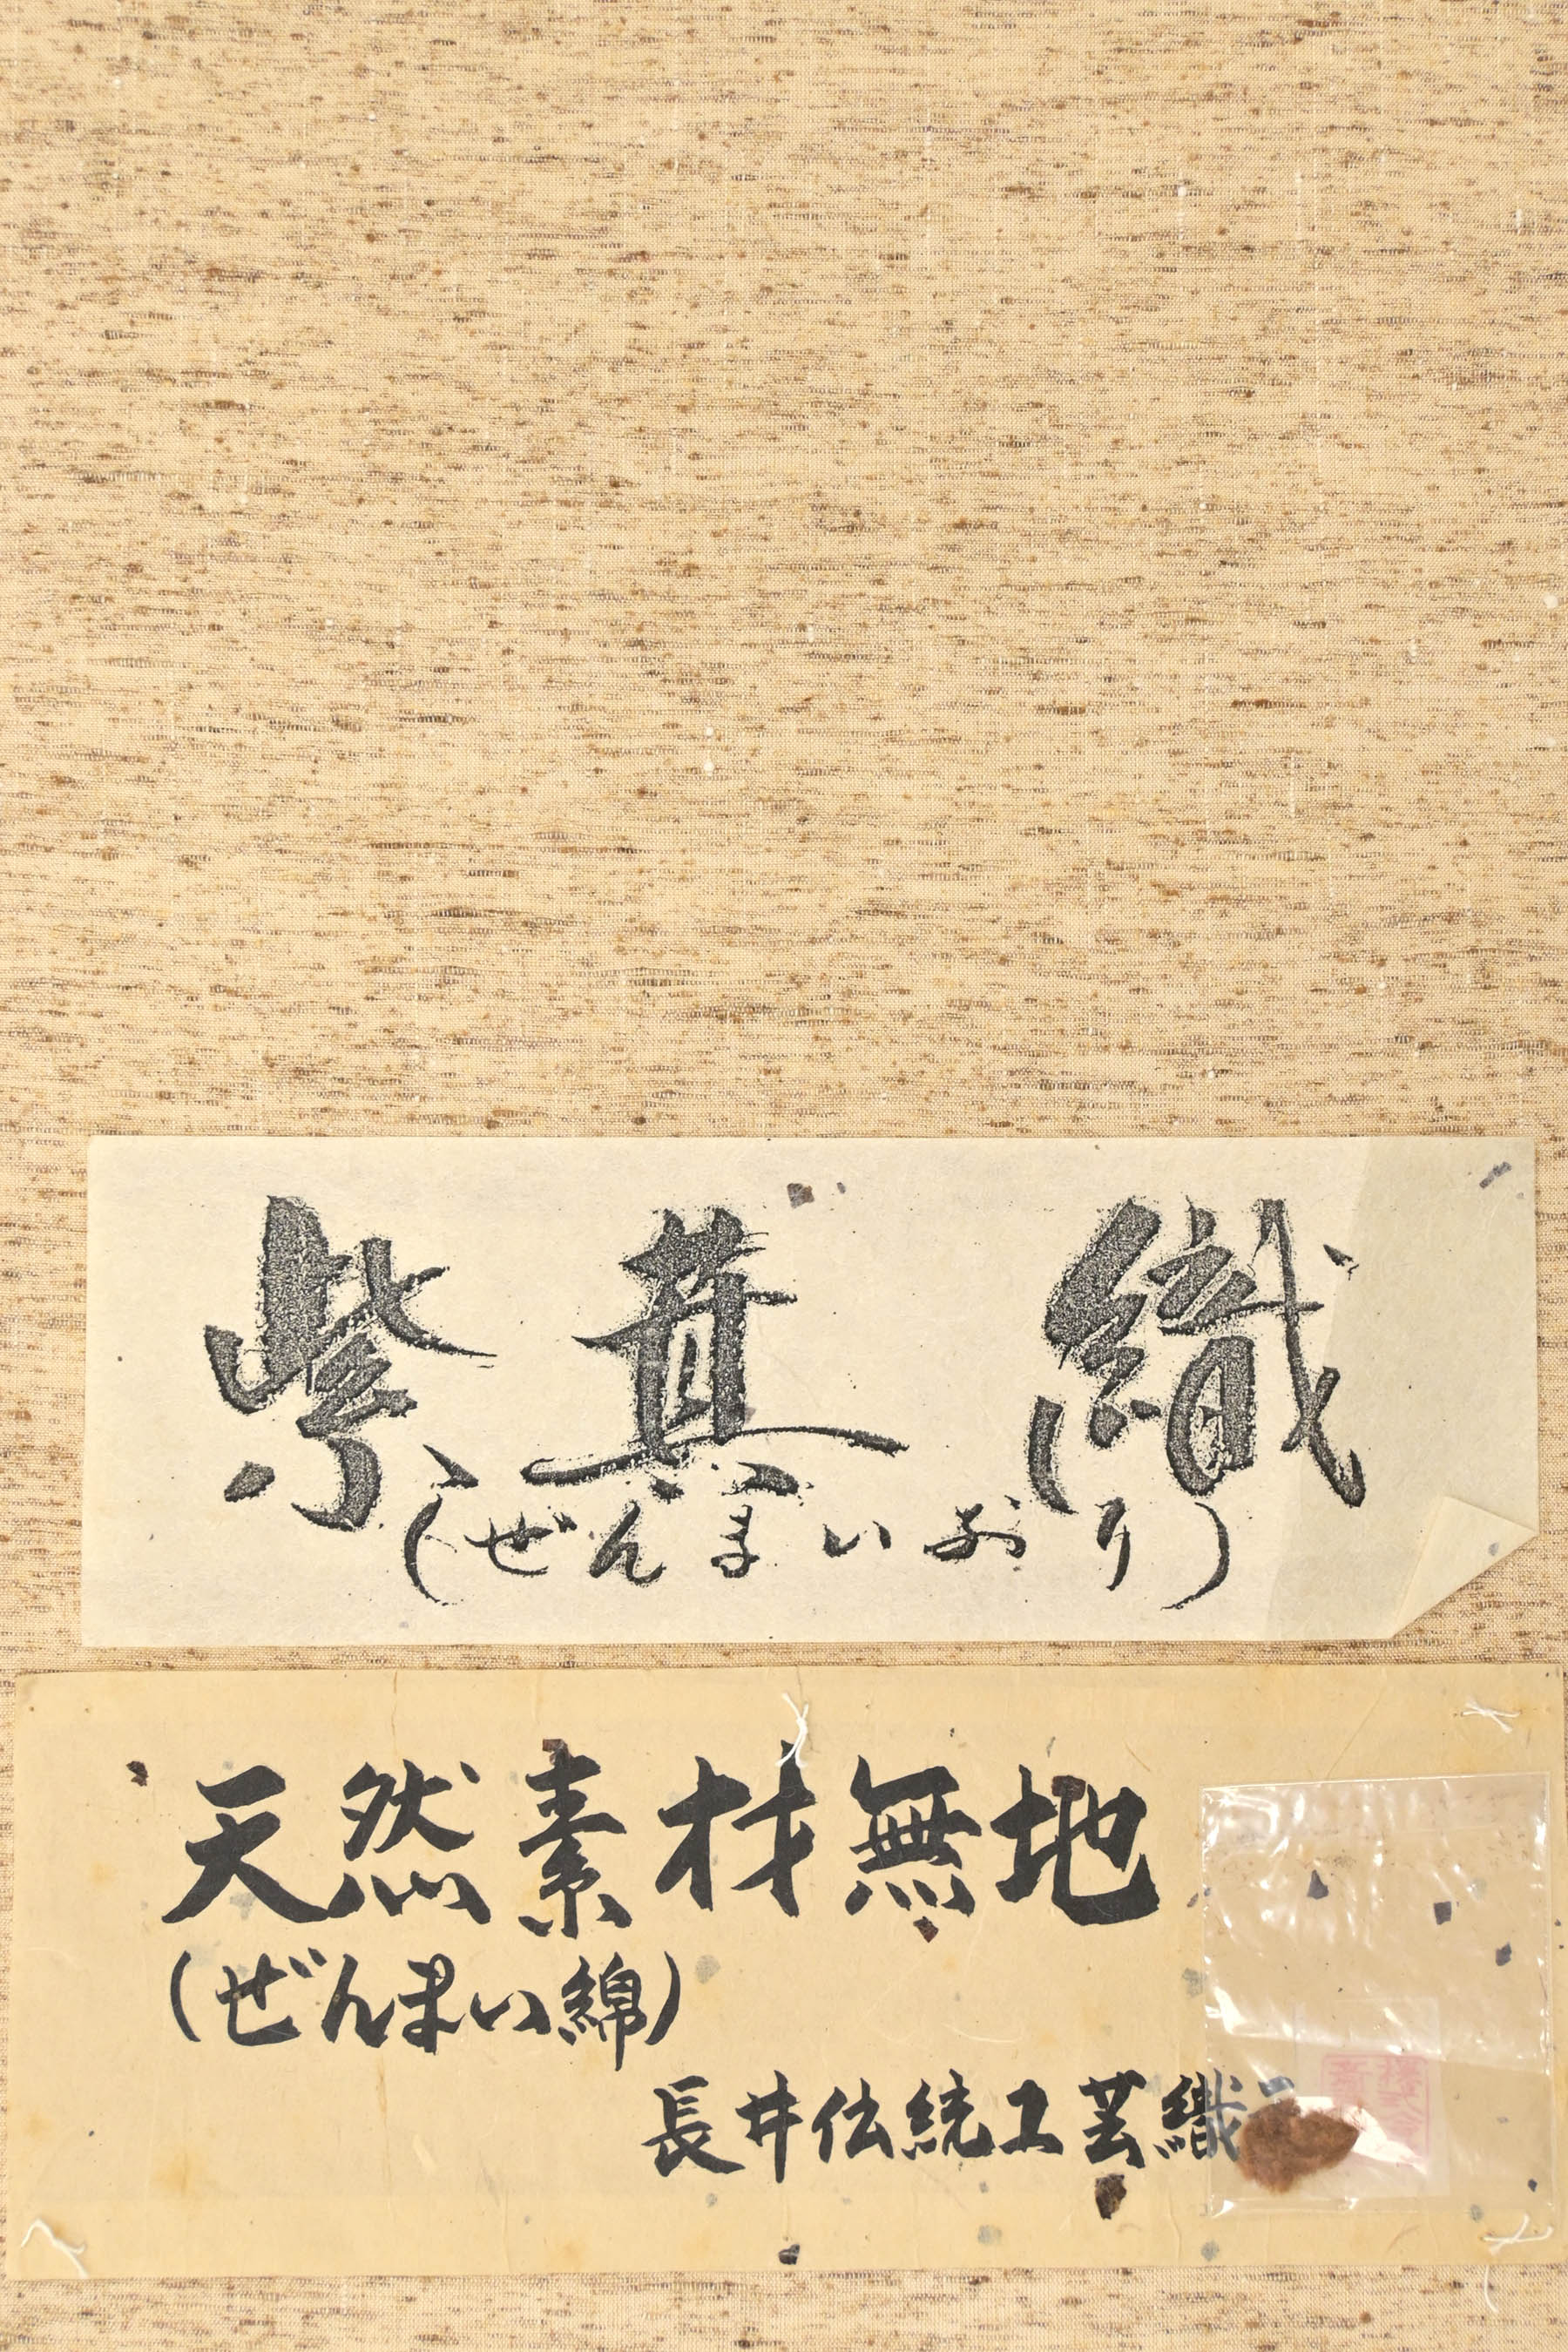 紫萁織
(ぜんまいおり)
天然素材無地
(ぜんまい綿)
長井伝統工芸織